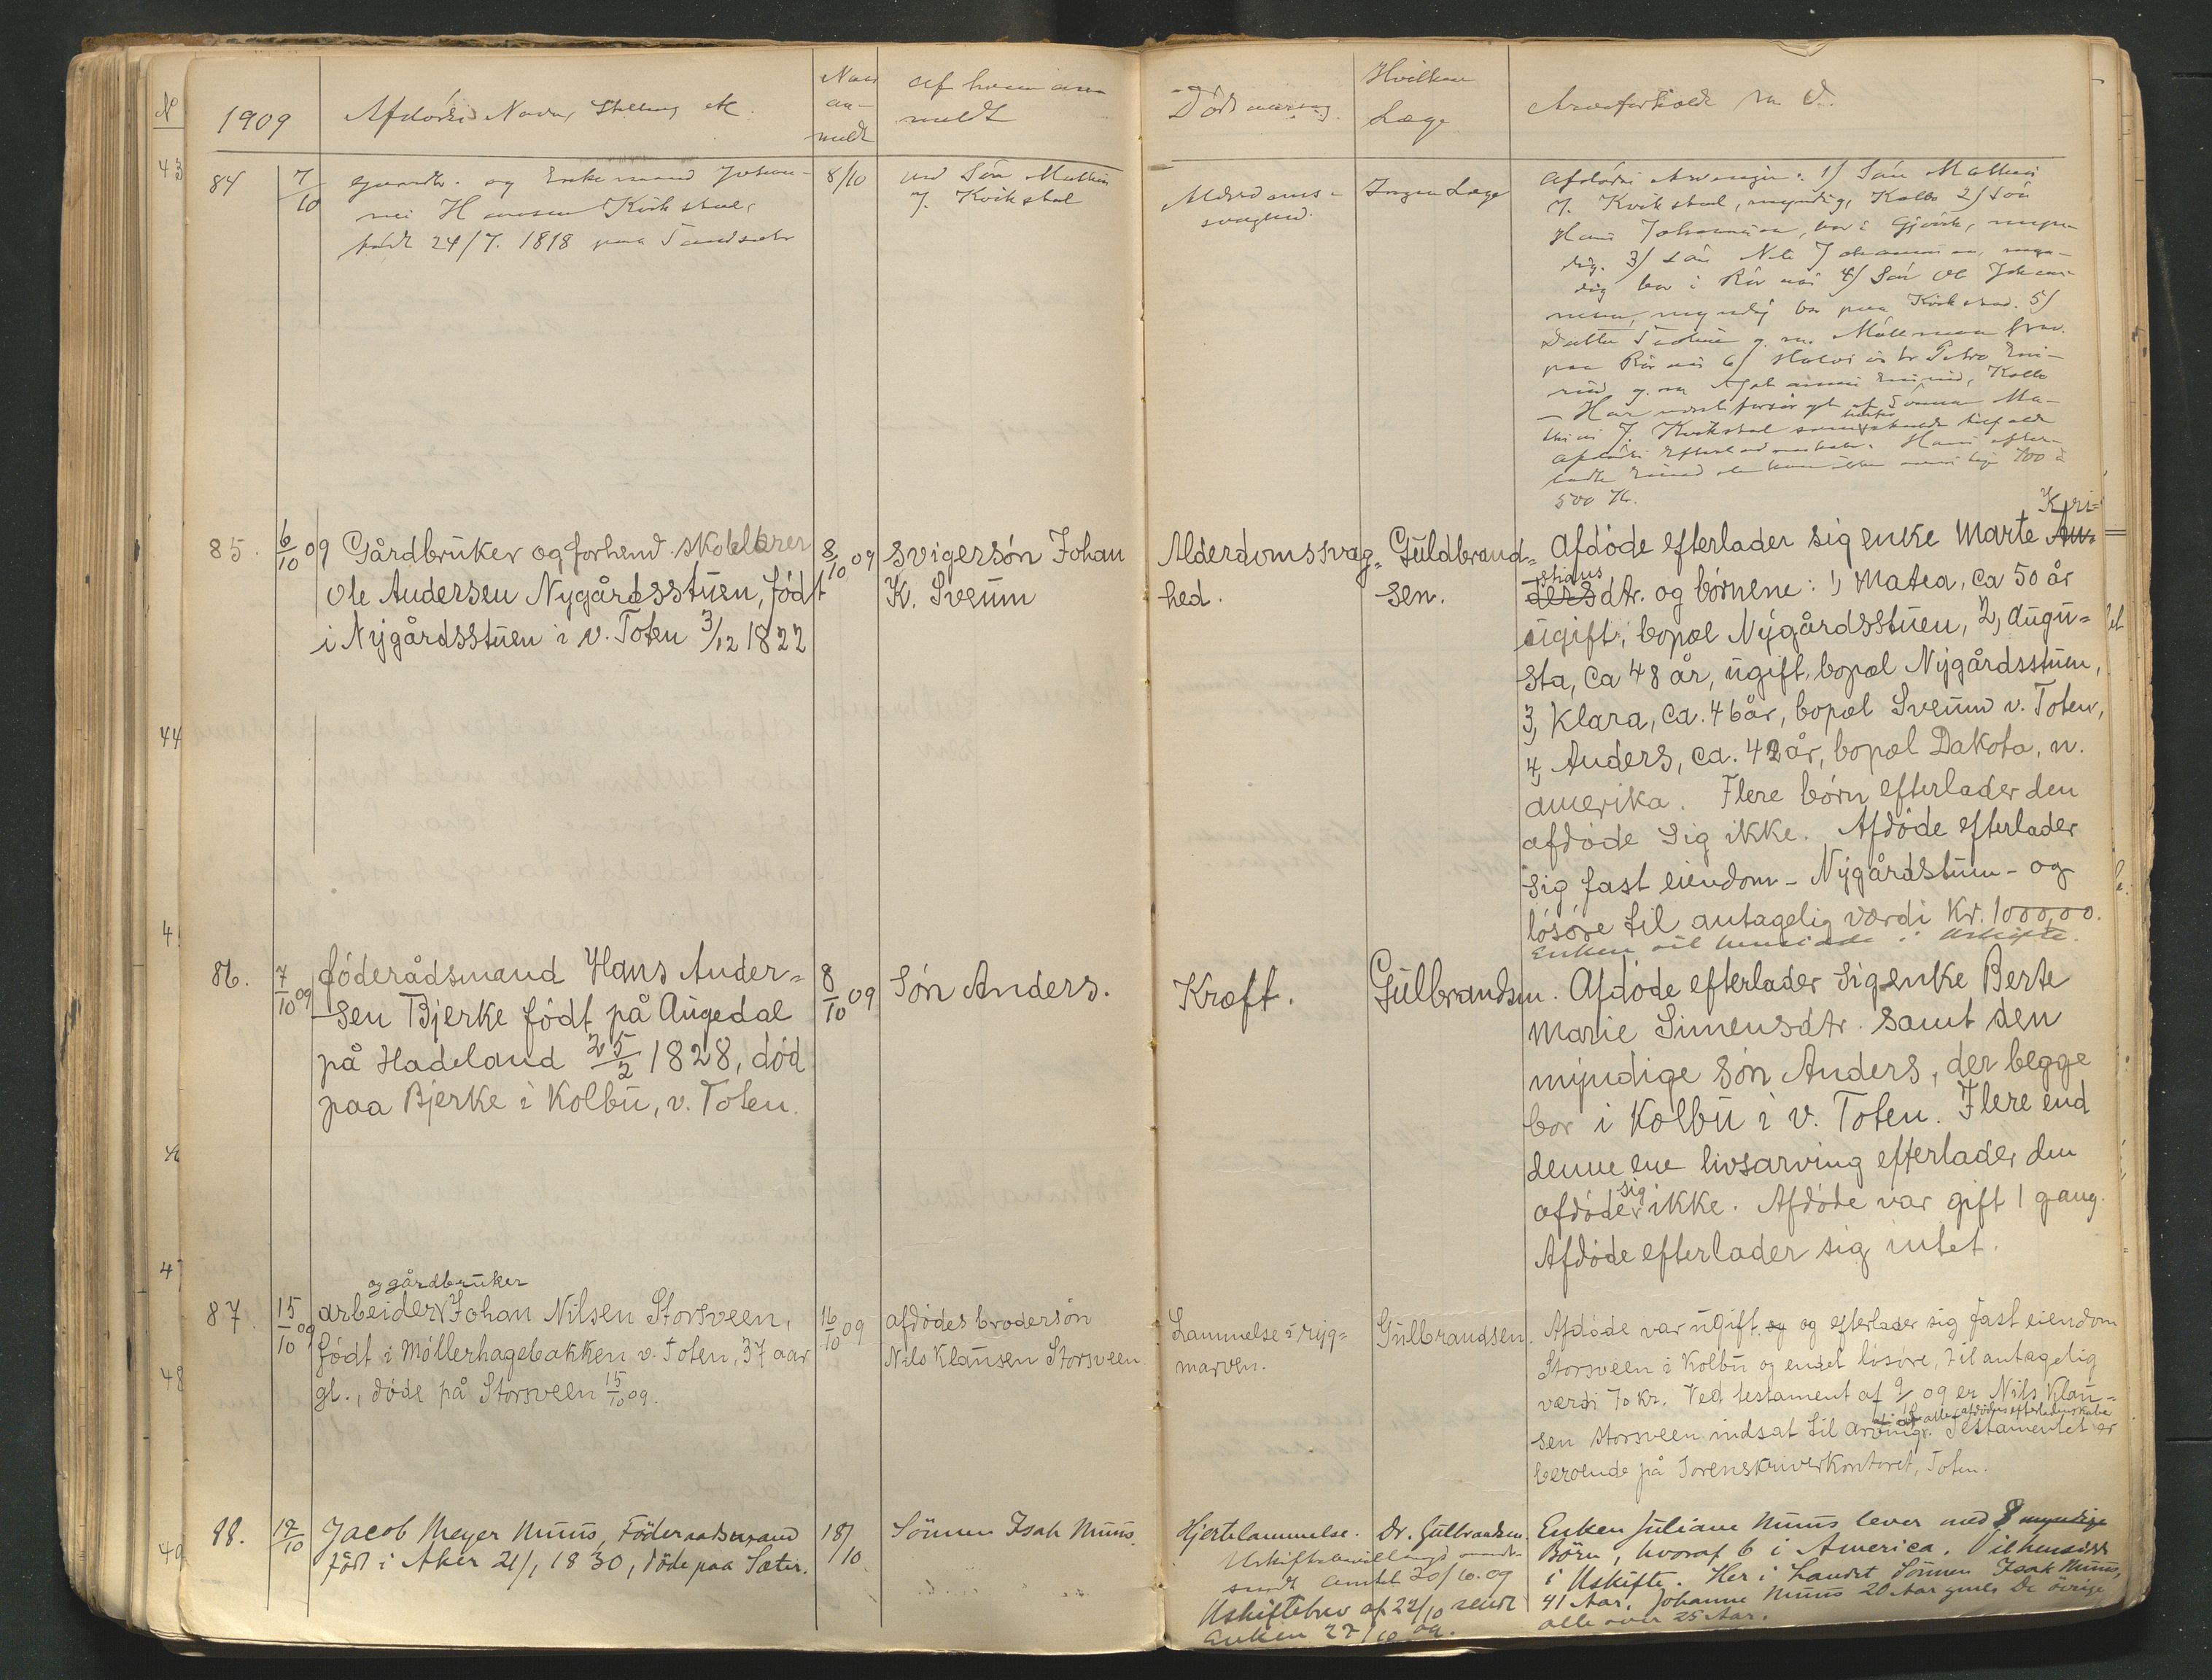 1909
Afdødes Navn, Stilling etc.
Naar
an-
meldt
Af hvem an-
meldt
Dødsaarsag.
Hvilken
Læge
Arveforhold m. v.
84
7/10
Gaardbr. og Enkemand Johan-
nes Hansen Kvikstad,
født 24/7. 1818 paa
8/10
ved Søn Mathias
J. Kvikstad
Alderdoms-
svaghed.
Ingen Læge
Afdødes Arvinger: 1/ Søn Mathias
J. Kvikstad, myndig, Kolbo 2/ Søn
Hans Johannesen, bor i Gjøvik, myn-
dig. 3/ Søn Nils Johannesen, myn-
dig bor i 4/ Søn Ole Johan-
nesen, myndig bor paa Kvikstad. 5/
Datter g. m.
paa 6/ Petra
g. m. Kolbo
- Har været forsørget af Sønnen Ma-
thias J. Kvikstad som
Afdødes Hans efter-
500 Kr.
85.
6/10 09
Gårdbruker og forhend skolelærer
Ole Andersen Nygårdsstuen, født
i Nygårdsstuen i v. Toten 3/12 1822
8/10 09
svigersøn Johan
K. Sveum
Alderdomssvag=
hed.
Guldbrand=
sen.
Kri=
Afdøde efterlader sig enke Marte An-
stians
dersdtr. og børnene: 1, Matea, ca 50 år
ugift, bopæl Nygårdsstuen, 2, Augu=
sta, ca 48 år, ugift, bopæl Nygårdsstuen,
3, Klara, ca. 46 år, bopæl Sveum v. Toten,
4, Anders, ca. 42 år, bopæl Dakota, n.
amerika. Flere børn efterlader den
afdøde sig ikke. Afdøde efterlader
sig fast eiendom - Nygårdstuen - og
løsøre til antagelig værdi Kr. 1000,00.
Enken vil hensidde i Uskifte.
86.
7/10 09
føderådsmand Hans Ander=
sen Bjerke født på Augedal
på Hadeland 25/2 1828, død
paa Bjerke i Kolbu, v. Toten.
8/10 09
Søn Anders.
Kræft.
Gulbrandsen.
Afdøde efterlader sig enke Berte
Marie Simensdtr. samt den
myndige søn Anders, der begge
bor i Kolbu i v. Toten. Flere end
denne ene livsarving efterlader den
afdøde sig ikke. Afdøde var gift 1 gang.
Afdøde efterlader sig intet.
87.
15/10 09
og gårdbruker
arbeider Johan Nilsen Storsveen,
født i Møllerhagebakken v. Toten, 37 aar
gl., døde på Storsveen 15/10 09.
16/10 09
afdødes brodersøn
Nils Klausen Storsveen
Lammelse i ryg=
marven.
Gulbrandsen.
Afdøde var ugift og og efterlader sig fast eiendom
Storsveen i Kolbu og endel løsøre, til antagelig
værdi 70 kr. Ved testament af 9/10 09 er Nils Klau=
af alle afdødes efterladenskaber
sen Storsveen indsat til arving. Testamentet er
beroende på Sorenskriverkontoret, Toten.
88.
17/10
Jacob Meyer Muus, Föderaadsmand
født i Aker 21/1 1830, døde paa Sæter.
18/10
Sönnen Isak Muus.
Hjertelammelse.
Dr. Gulbrandsen.
Uskiftebevillings
sendt Amtet 20/10. 09
Uskiftebrev af 22/10 sendt
Enken 27/10 09.
Enken Juliane Muus lever med 8 myndige
Børn, hvoraf 6 i America. Vil hensidde
i Uskifte. Her i Landet Sönnen Isak Muus,
41 Aar. Johanne Muus 20 Aar gml. De övrige
alle over 25 Aar.
43
44
47
48